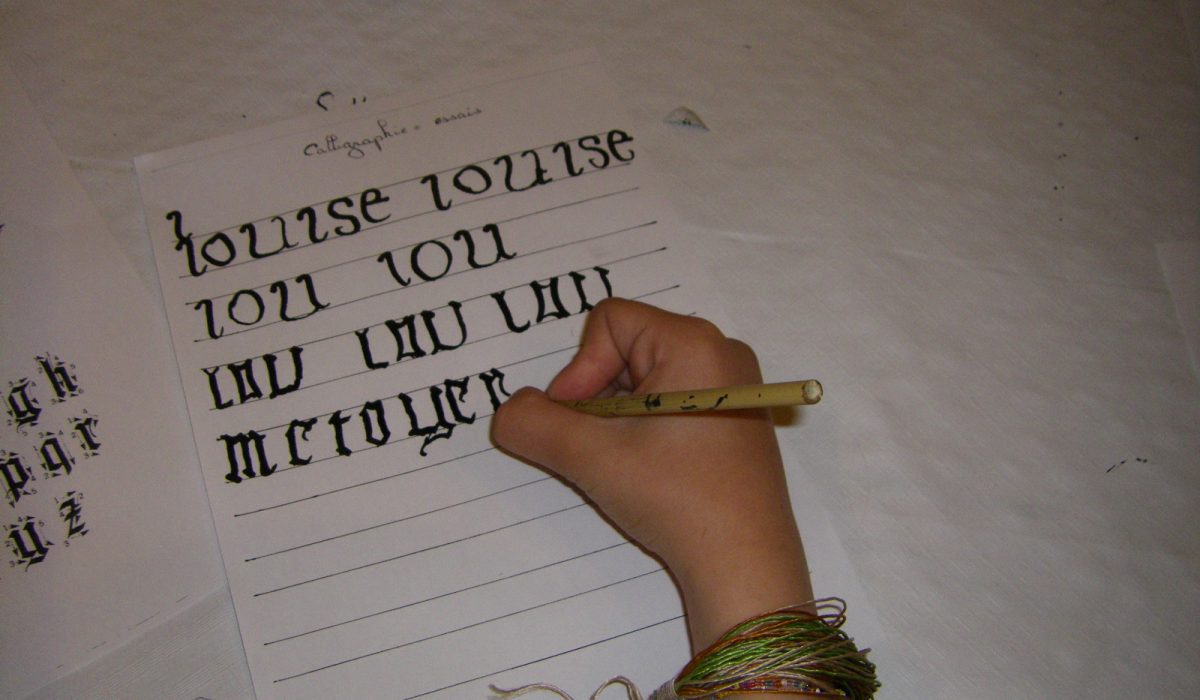 Calligraphie = essais
louise louise
lou lou
lou lou lou
metoyer
g h
p q r
y z